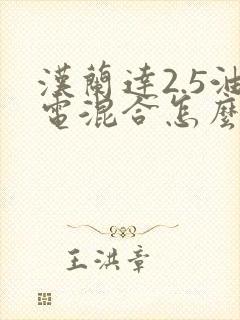 漢蘭達2.5油
電混合怎麼
王洪章